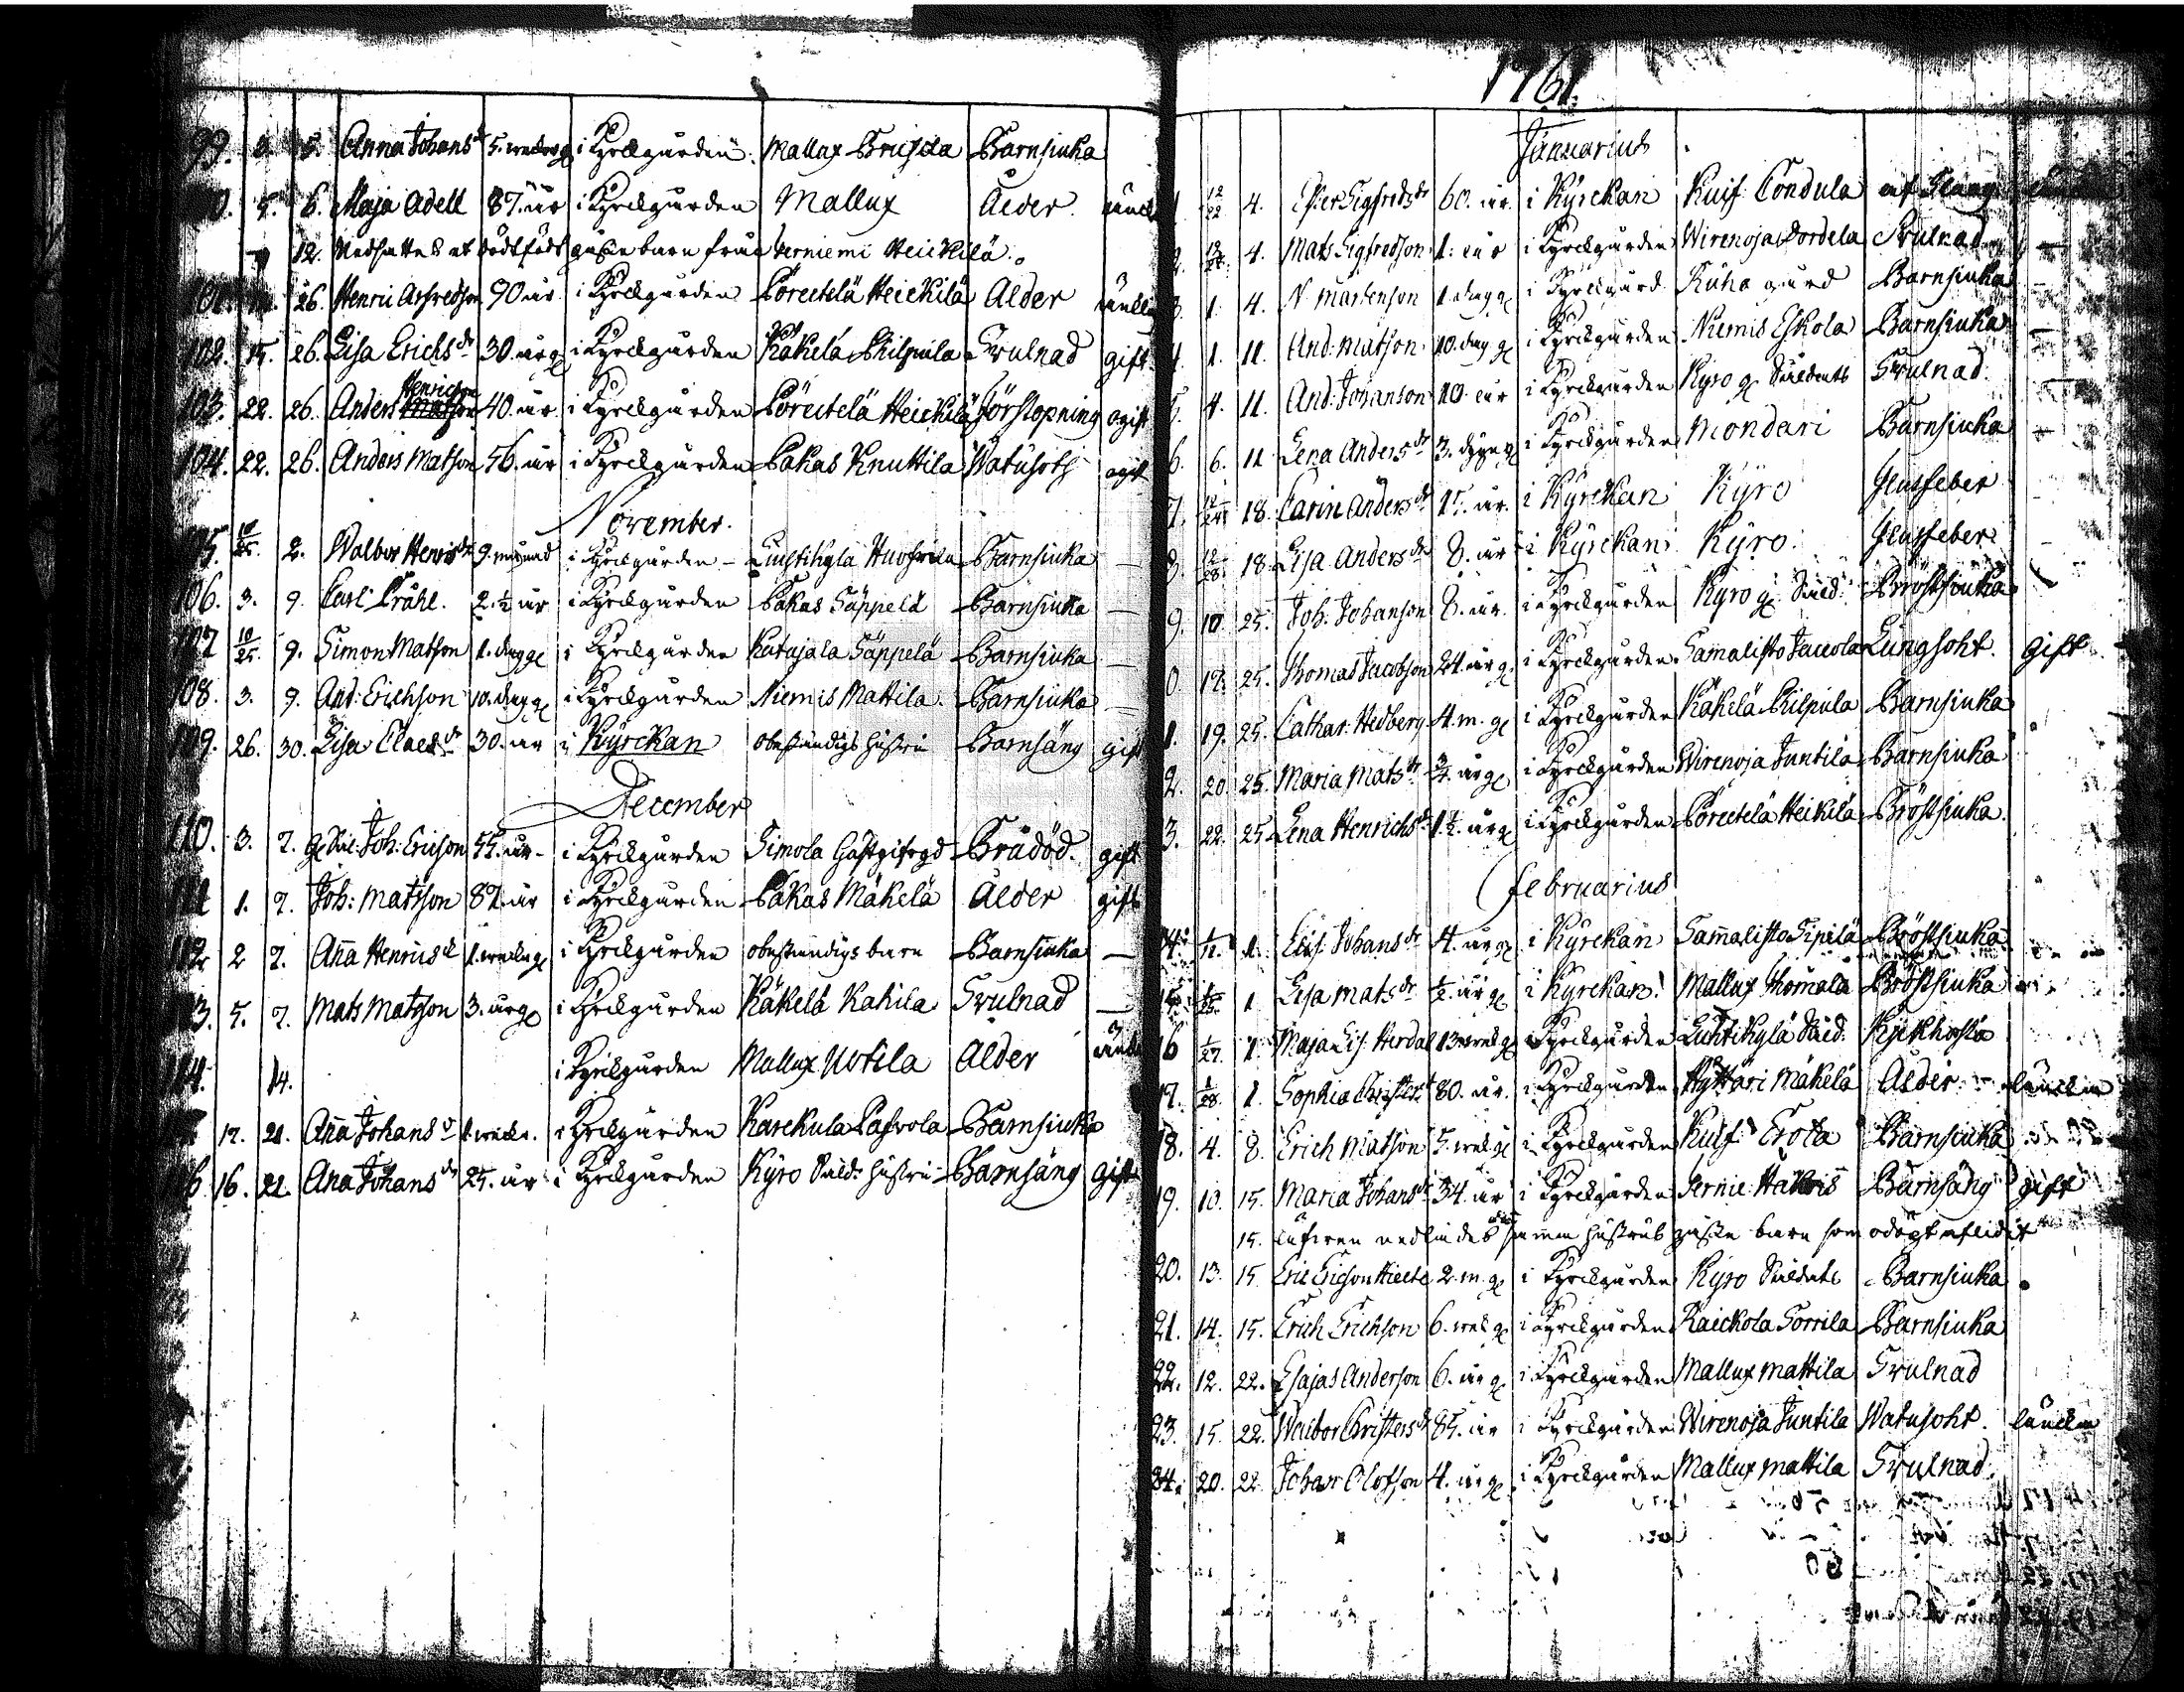 99. 3. 5. Anna Johans dr 5. weckor g. i Kyrckgården. Mallux Bruscila Barnsiuka
5. 6. Maja Adell 87. år i Kyrckgården Mallux Ålder.
12. Nedsattes et dödfödt barn från Herniemi Heickilä.
26. Henric Arfvedson 90 år i Kyrckgården Pöreitelä Heickilä Ålder
102. 15. 26. Lisa Erichs dr 30. år g. i Kyrckgården Käkelä Philpula Svulnad gift
103. 22. 26. Anders Henricson 40. år i Kyrckgården Pöreitelä Heickilä Förstopning ogift
104. 22. 26. Anders Matson 56. år i Kyrckgården Pakas Knuttila Watusoth ogift
November.
10/25. 2. Walbor Henric dr 9. månad i Kyrckgården Barnsiuka
106. 3. 9. Carl Pråhl. 2. ½ år i Kyrckgården Pakas Säppelä Barnsiuka
107 10/25. 9. Simon Matson 1. dag g. i Kyrckgården Katajala Säppelä Barnsiuka
108. 3. 9. And: Erichson 10. dag g. i Kyrckgården Niemis Mattila. Barnsiuka
109. 26. 30. Lisa Claes dr 30. år i Kyrckan obeständigs hustru Barnsäng gift
December
110. 3. 7. Joh: Ericson 55. år i Kyrckgården Simola Brådöd. gift
1. 7. Joh: Matsson 87. år i Kyrckgården Pakas Mäkelä Ålder gift
112 2 7. Aña Henrics d. 1. wecka g. i Kyrckgården obeständigs barn Barnsiuka
5. 7. Mats Matsson 3. år g. i Kyrckgården Käkelä Kahila Svulnad
114. 14. i Kyrckgården Mallux Uotila Ålder
17. 21. Aña Johans d 1. wecka. i Kyrckgården Karckula Pafvola Barnsiuka
16. 21. Aña Johans dr 25. år i Kyrckgården Kyro Sald: hustru Barnsäng Gift
1761.
Januarius
12/22 4. Ester Sigfreds dr 60. år. i Kyrckan Kuif Tondula
4. Mats Sigfredson 1. år i Kyrckgården Wirenoja Svulnad
1. 4. N Mårtenson 1. dag g. i Kyrckgård. Kuha gård Barnsiuka
4. 1. 11. And: Matson 10. dag g. i Kyrckgården Niemis Eskola Barnsiuka
4. 11. And: Johanson 10. år i Kyrckgården Kyro g. Svulnad
6. 6. 11 Lena Anders dr 3. dygn g. i Kyrckgården Mondari Barnsiuka
7. 18. Carin Anders dr 15. år. i Kyrckan Kyro
12/28. 18 Lisa Anders dr 8. år i Kyrckan Kyro.
9. 10. 25. Joh. Johanson 8. år. i Kyrckgården Kyro g. Bröstsiuka
17. 25. Thomas Jacobson 24. år g. i Kyrckgården Samalisto Lungsoht. Gift
19. 25. Cathar. Hedberg 4. m. g. i Kyrckgården Käkelä Philpula Barnsiuka
2. 20 25. Maria Mats dr ¾ år g. i Kyrckgården Wirenoja Juntila Barnsiuka
3. 22. 25 Lena Henrichs dr 1 ½. år g. i Kyrckgården Pöreitelä Heikilä Bröstsiuka.
Februarius
1/12. 1. Lis: Johans dr 4. år g. i Kyrckan Sam̄alisto Sipilä Bröstsiuka
1/25. 1 Lisa Mats dr ½. år g. i Kyrckan Mallux Thomala Bröstsiuka
16 1/27. 1 Maja Lis. Herdal 13 weck g. i Kyrckgården Luhtikylä Kjkhosta
17. 1/28. 1. Sophia Christers 80. år. i Kyrckgården Hyttäri Mäkelä Ålder.
18. 4. 8. Erich Matson 5. wek g. i Kyrckgården Kuif Erota Barnsiuka
19. 10. 15. Maria Johans dr 34. år i Kyrckgården Barnsäng gift
15. nedlades hustrus barn som odöpt aflidit
20. 13. 15 Eric Ericson 2. m. g. i Kyrckgården Kyro Barnsiuka
21. 14. 15. Erich Erichson 6. wek g. i Kyrckgården Raickola Sorrila Barnsiuka
22. 12. 22. Esajas Anderson 6. år g. i Kyrckgården Mallux Mattila Svulnad
23. 15. 22. Walbor Christers dr 85. år i Kyrckgården Wirenoja Juntila Watusoht.
20. 22 Johan Olofson 4. år g. i Kyrckgården Mallux Mattila Svulnad